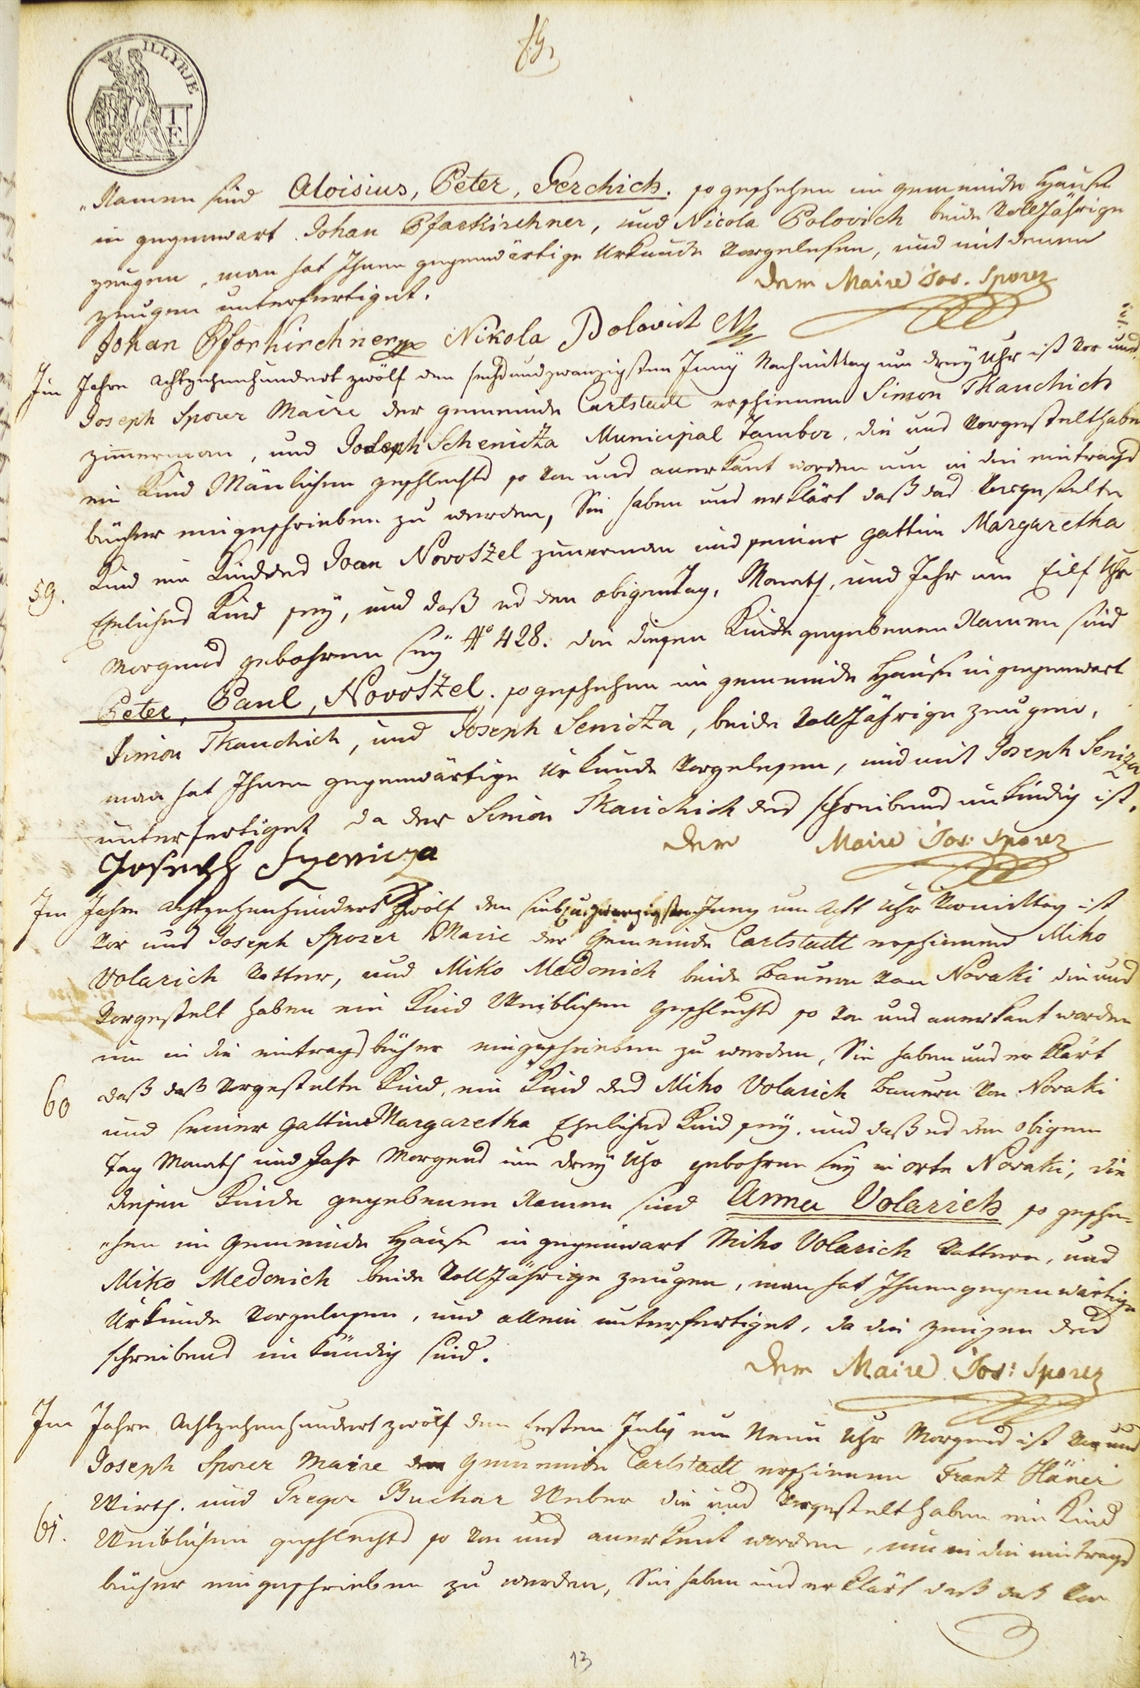 ILLYRIE
T
E
Namen sind Aloisius, Peter, Gerchich. so geschehen im gemeinde Hause
in gegenwart Johan Pfarkirchner, und Nicola Polovich beide VollJährige
zeugen, man hat Ihnen gegenwärtige Urkunde Vorgelesen, und mit denen
zeugen unterfertiget.
Der Maire Jos. Sporer
Johan Pforkirchner Nikola Dolovich
Im Jahre Achtzehenhundert zwölf den sechsundzwanzigsten Juny Nachmittag um drey Uhr ist Vor uns
Joseph Sporer Maire der gemeinde Carlstadt erschienen Simon Tkauchich
zimmerman, und Joseph Schenitza Municipal Tambor, die uns Vorgestelt haben
ein Kind Mänlichen geschlechts so Von uns anerkant worden um in die eintrags
bücher eingeschrieben zu werden, Sie haben uns erklärt daß das Vorgestelte
59. Kind ein Kind des Ivan Novoszel zimerman und seiner gattin Margaretha
Ehelichs Kind sey, und daß es den obigen Tag, Monath, und Jahr um Eilf Uhr
Morgens gebohren sey No 428. die diesen Kinde gegebenen Namen sind
Peter, Paul, Novoszel. so geschehen im gemeinde Hause in gegenwart
Simon Tkauchich, und Joseph Senitza, beide VollJährige zeugen,
man hat Ihnen gegenwärtige Urkunde Vorgelesen, und mit Joseph Seniza
unterfertiget da der Simon Tkauchich des schreibens unkündig ist.
Der Maire Jos: Sporer
Joseph Szenicza
Im Jahre Achtzehenhundert zwölf den Juny um Acht Uhr Vormittag ist
Vor uns Joseph Sporer Maire der Gemeinde Carlstadt erschienen Miko
Volarich Vatter, und Miko Medonich beide Bauern Von Novaki die uns
Vorgestelt haben ein Kind Weiblichen geschlechts so Von uns anerkant worden
um in die eintrags bücher eingeschrieben zu werden, Sie haben uns erklärt
60 daß daß Vorgestelte Kind, ein Kind des Miko Volarich Bauern Von Novaki
und seiner gattin Margaretha Ehelichs Kind sey, und daß es den obigen
Tag Monath und Jahr Morgens um drey Uhr gebohren sey in orte Novaki, die
diesen Kinde gegebenen Namen sind Anna Volarich so gesche-
"hen im Gemeinde Hause in gegenwart Miko Volarich Vattern, und
Miko Medonich beide VollJährige zeugen, man hat Ihnen gegenwärtige
Urkunde Vorgelesen, und allein unterfertiget, da die zeugen des
schreibens unkündig sind.
Der Maire Jos: Sporer
Im Jahre Achtzehenhundert zwölf den Ersten July um Neun Uhr Morgens ist Vor uns
Joseph Sporer Maire Gemeinde Carlstadt erschienen Frantz
Wirth. und Gregor Buchar Weber die uns Vorgestelt haben ein Kind
61. Weiblichen geschlechts so Von uns anerkant worden, um in die eintrags
bücher eingeschrieben zu werden, Sie haben uns erklärt daß daß Vor
13